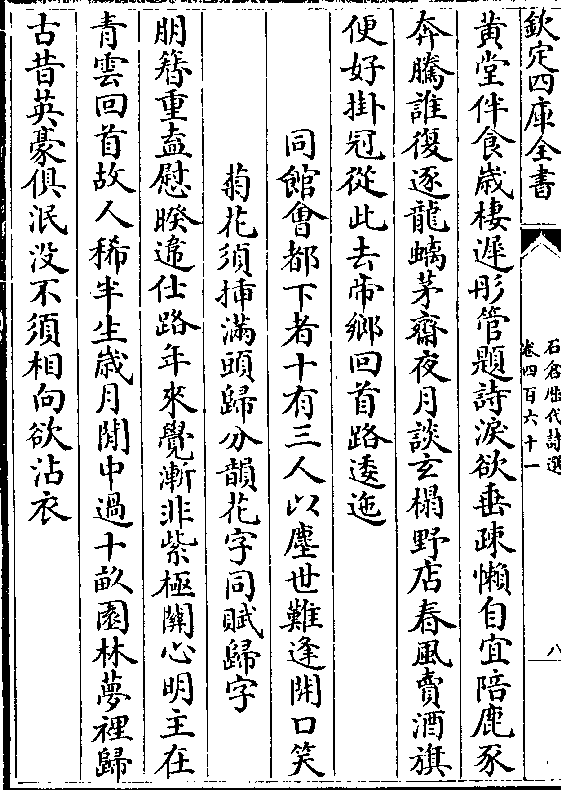 欽定四庫全書
石倉歴代詩選
卷四百六十一
八
黄堂伴食歲棲遲彤管題詩淚欲垂疎懶自宜陪鹿豕
奔騰誰復逐龍螭茅齋夜月談玄榻野店春風賣酒旗
便好掛冠從此去帝鄉回首路逶迤
同館會都下者十有三人以塵世難逢開口笑
菊花須插滿頭歸分韻花字同賦歸字
朋簪重盍慰暌違仕路年來覺漸非紫極關心明主在
青雲回首故人稀半生歲月閒中過十畝園林夢裡歸
古昔英豪俱泯没不須相向欲沾衣